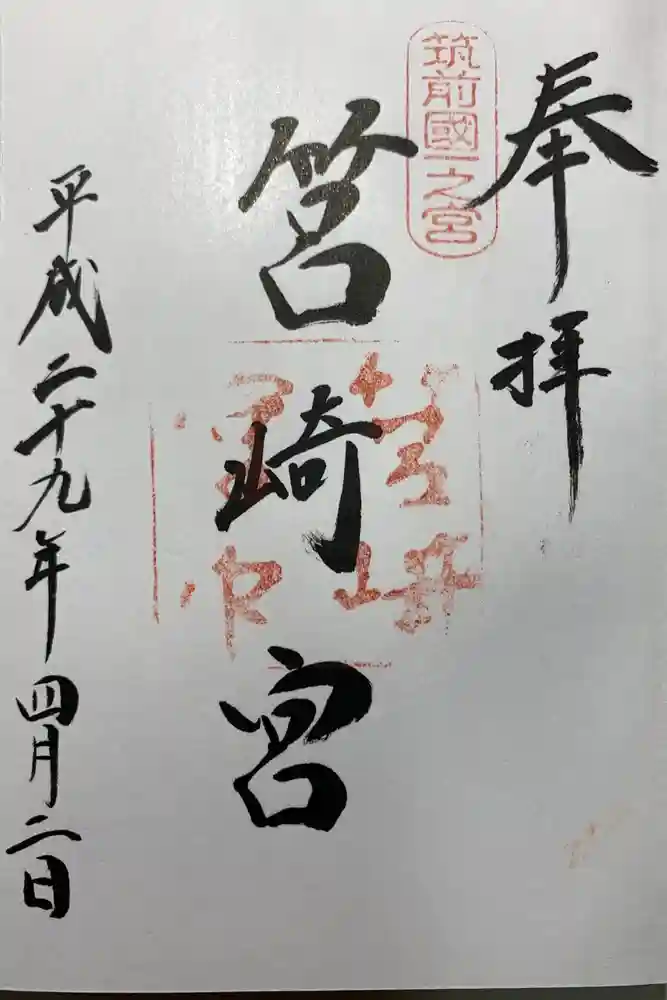 奉拝
筑前國一之宮
筥崎宮
平成二十九年四月二日